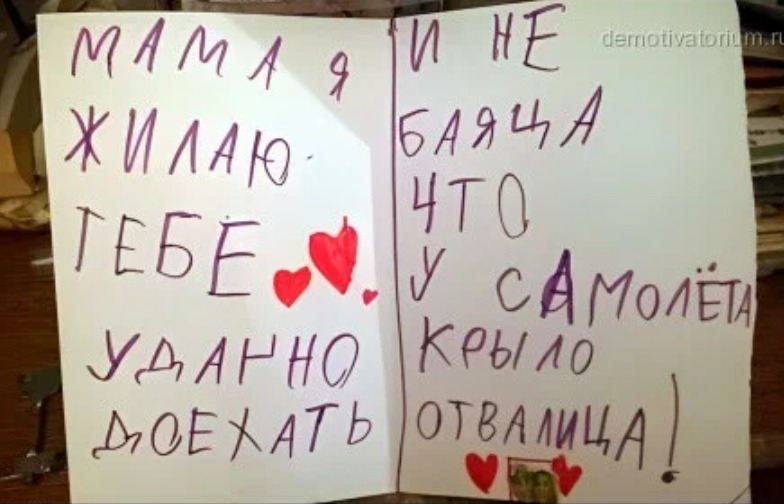 МАМА Я
ЖИЛАЮ
ТЕБЕ
УДАЧНО
ДОЕХАТЬ
И НЕ
БАЯЦА
ЧТО
У САМОЛЁТА
КРЫЛО
ОТВАЛИЦА!
demotivatorium.ru